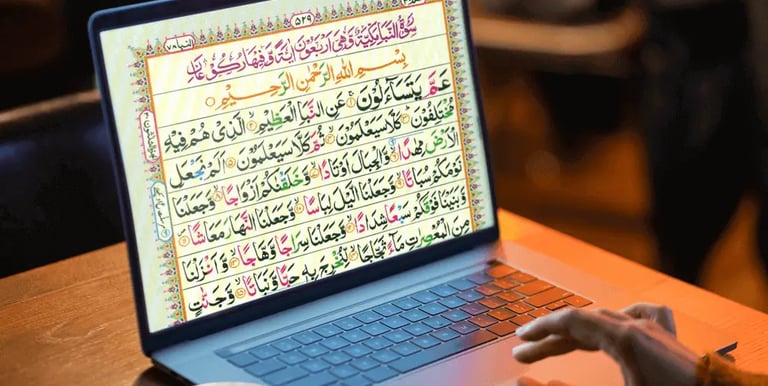 النبا ٧٨
٥٢٩
سورة النبا مكية وهى اربعون اية وفيها ركوعان
بِسْمِ اللّٰهِ الرَّحْمٰنِ الرَّحِيْمِ
عَمَّ يَتَسَآءَلُوْنَ عَنِ النَّبَاِ الْعَظِيْمِ الَّذِىْ هُمْ فِيْهِ
مُخْتَلِفُوْنَ كَلَّا سَيَعْلَمُوْنَ ثُمَّ كَلَّا سَيَعْلَمُوْنَ اَلَمْ نَجْعَلِ
الْاَرْضَ مِهٰدًا وَّالْجِبَالَ اَوْتَادًا وَّخَلَقْنٰكُمْ اَزْوَاجًا وَّجَعَلْنَا
نَوْمَكُمْ سُبَاتًا وَّجَعَلْنَا الَّيْلَ لِبَاسًا وَّجَعَلْنَا النَّهَارَ مَعَاشًا
وَّبَنَيْنَا فَوْقَكُمْ سَبْعًا شِدَادًا وَّجَعَلْنَا سِرَاجًا وَّهَّاجًا وَّاَنْزَلْنَا
مِنَ الْمُعْصِرٰتِ مَآءً ثَجَّاجًا لِّنُخْرِجَ بِهٖ حَبًّا وَّنَبَاتًا وَّجَنّٰتٍ